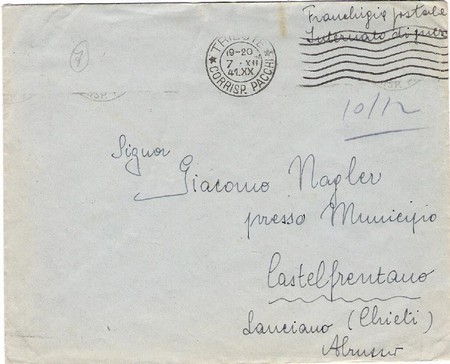 Franchigia postale
Internato di
TRIESTE
19-20
7 · XII
41.XX
* CORRISP. PACCHI *
7
10/12
Signor
Giacomo Nagler
presso Municipio
Castelfrentano
Lanciano (Chieti)
Abruzzi